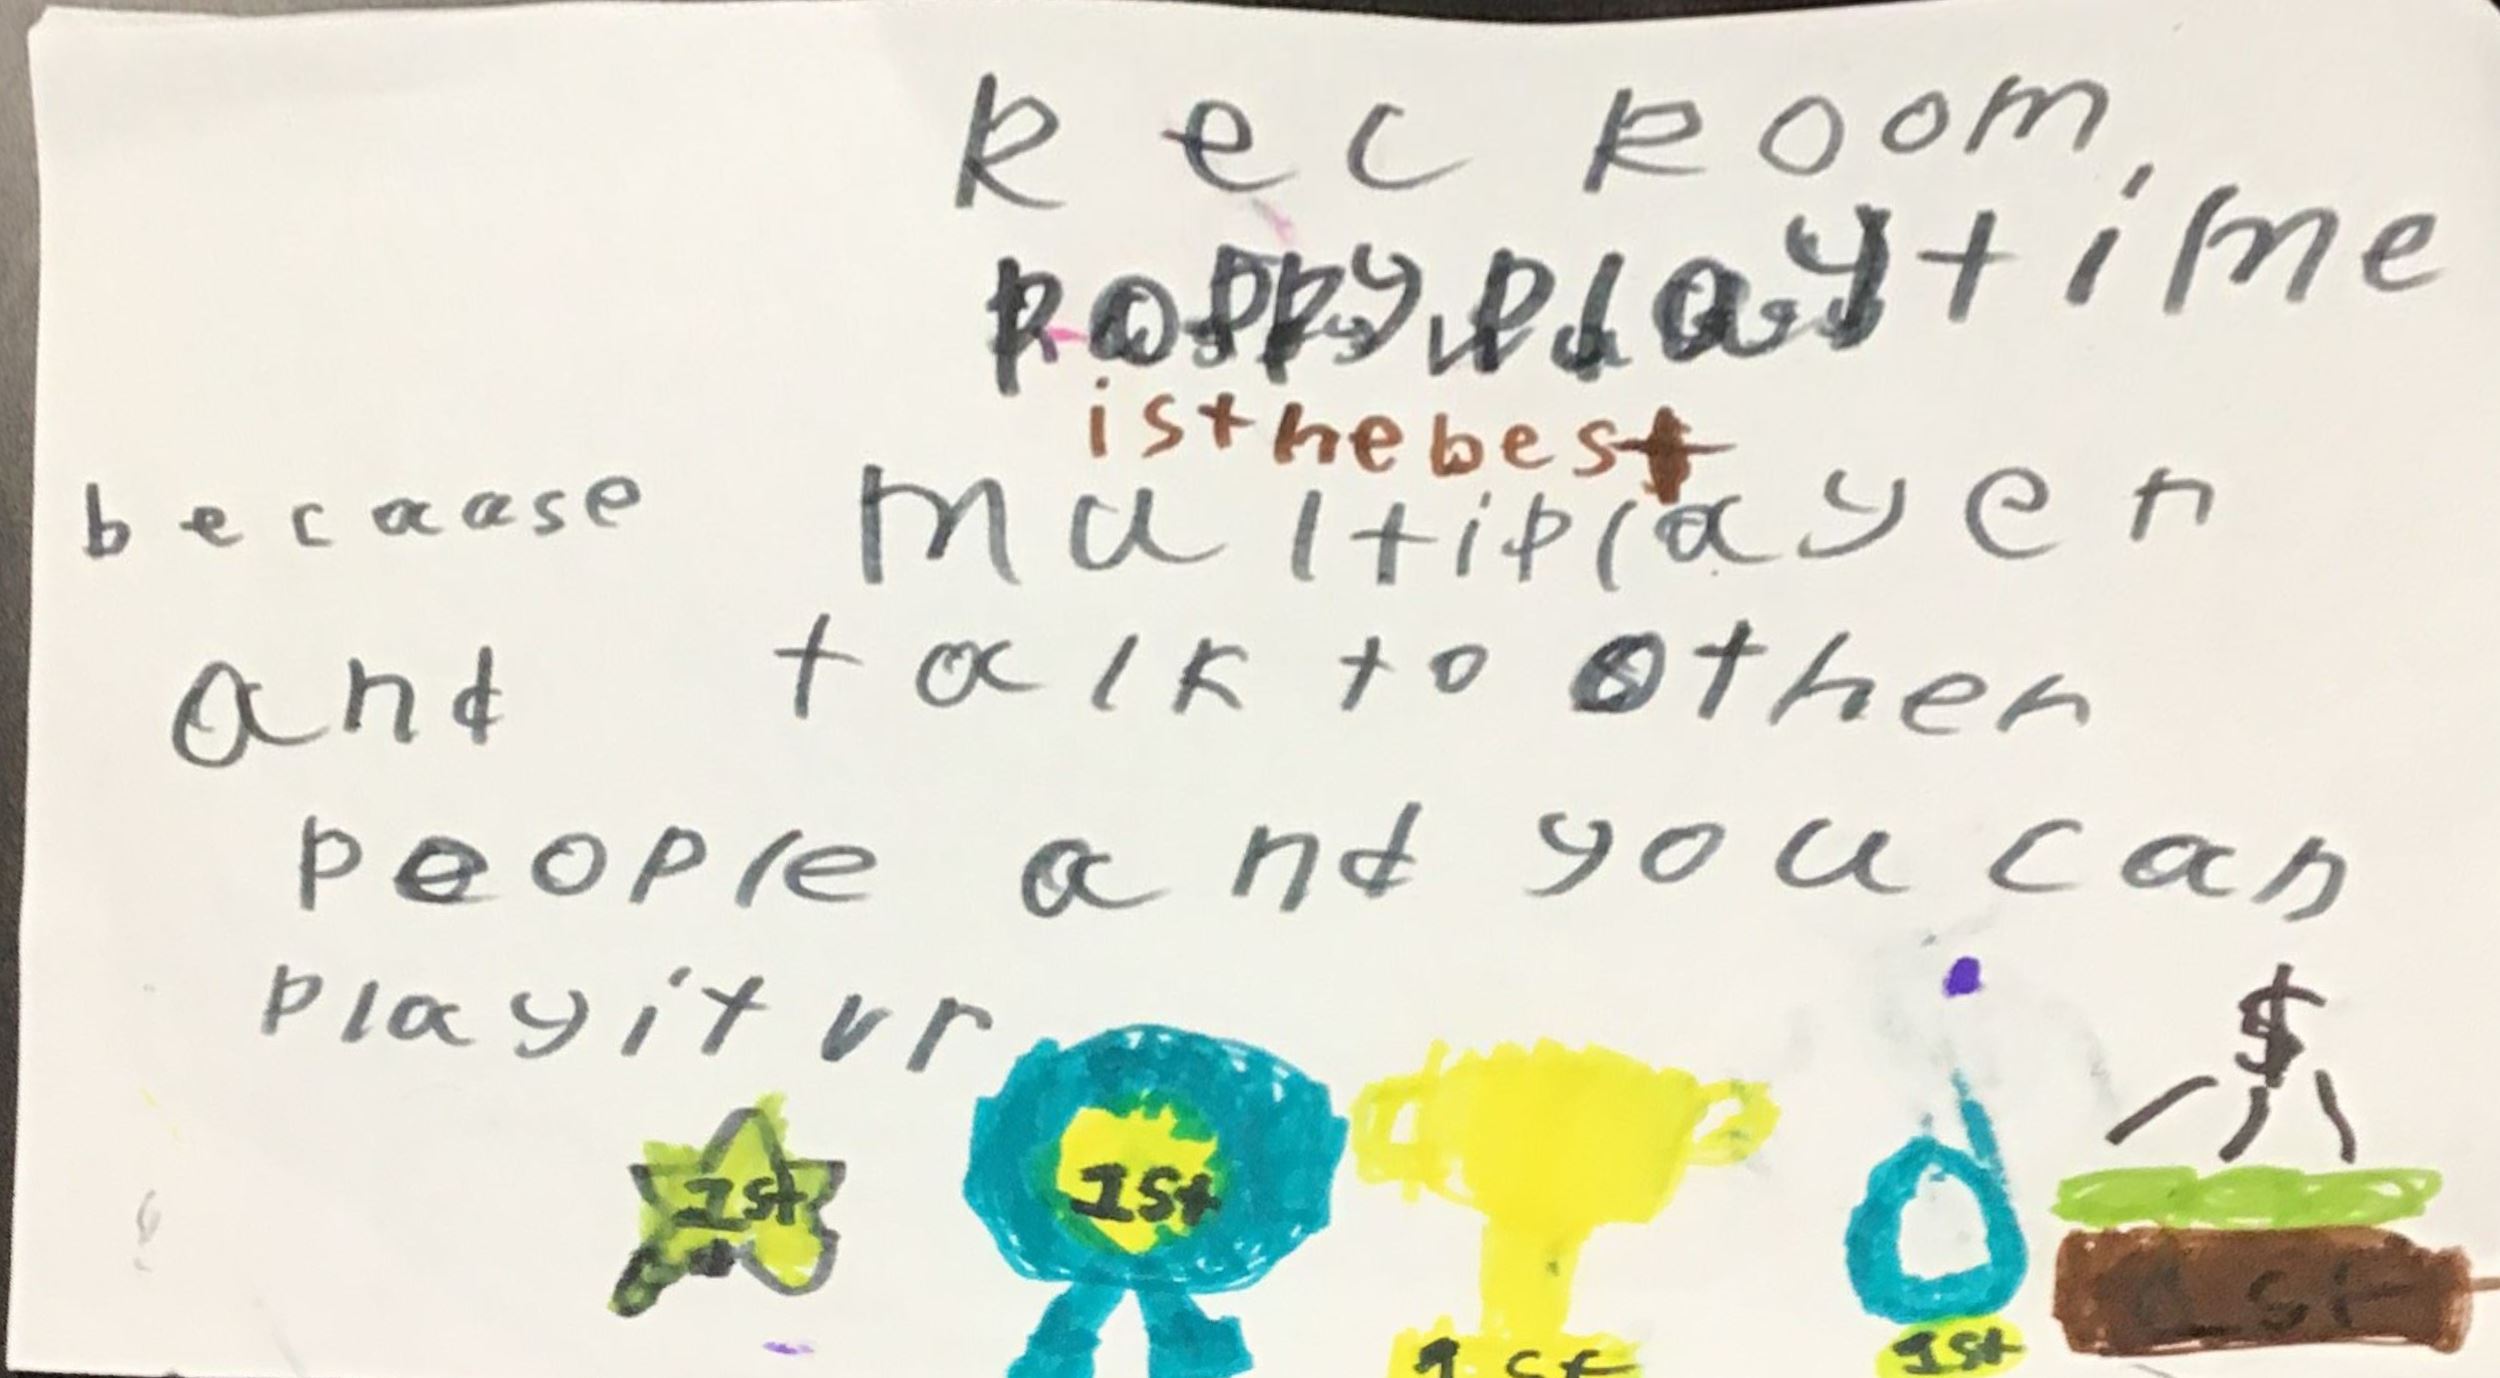 Rec Room,
poppy playtime
is the best
becaase multiplayer
and talk to other
people and you can
play it vr
1st
1st
1st
1st
1st
$